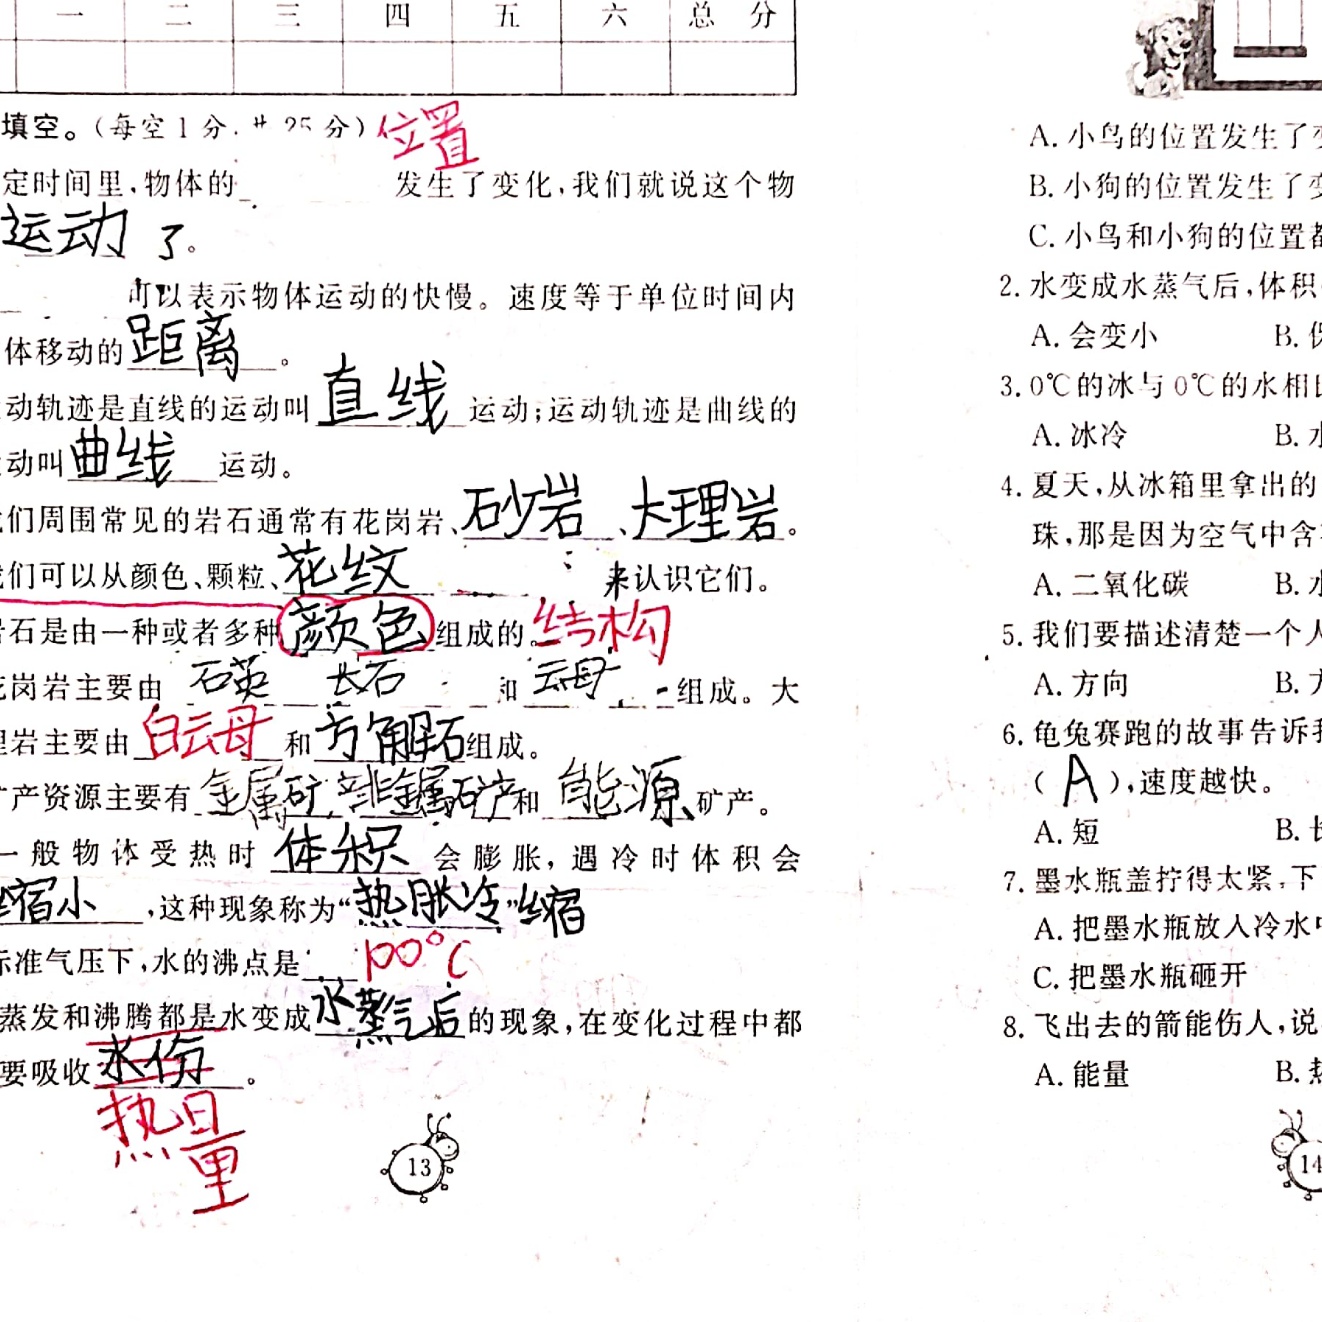 一 二 三 四 五 六 总 分
填空。(每空1分,共25分) 位置
定时间里,物体的 发生了变化,我们就说这个物
运动 了。
可以表示物体运动的快慢。速度等于单位时间内
体移动的距离。
动轨迹是直线的运动叫直线运动;运动轨迹是曲线的
动叫曲线运动。
们周围常见的岩石通常有花岗岩、砂岩、大理岩。
们可以从颜色、颗粒、花纹 来认识它们。
岩石是由一种或者多种颜色组成的。结构
花岗岩主要由 石英 长石 和 云母 组成。大
理岩主要由白云母和方解石组成。
矿产资源主要有金属矿,非金属矿产和能源矿产。
一般物体受热时体积会膨胀,遇冷时体积会
缩小,这种现象称为“热胀冷”缩
标准气压下,水的沸点是 100℃
蒸发和沸腾都是水变成水蒸气后的现象,在变化过程中都
要吸收水份。
热量
13
A.小鸟的位置发生了变
B.小狗的位置发生了变
C.小鸟和小狗的位置都
2.水变成水蒸气后,体积
A.会变小 B.
3.0℃的冰与0℃的水相比
A.冰冷 B.水
4.夏天,从冰箱里拿出的
珠,那是因为空气中含
A.二氧化碳 B.水
5.我们要描述清楚一个人
A.方向 B.方
6.龟兔赛跑的故事告诉我
(A),速度越快。
A.短 B.长
7.墨水瓶盖拧得太紧,下
A.把墨水瓶放入冷水中
C.把墨水瓶砸开
8.飞出去的箭能伤人,说
A.能量 B.热
14